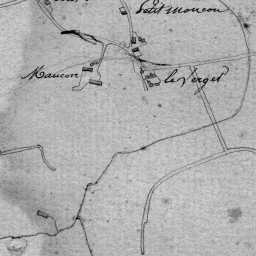 Petit Moucon
Maucon
le Verger